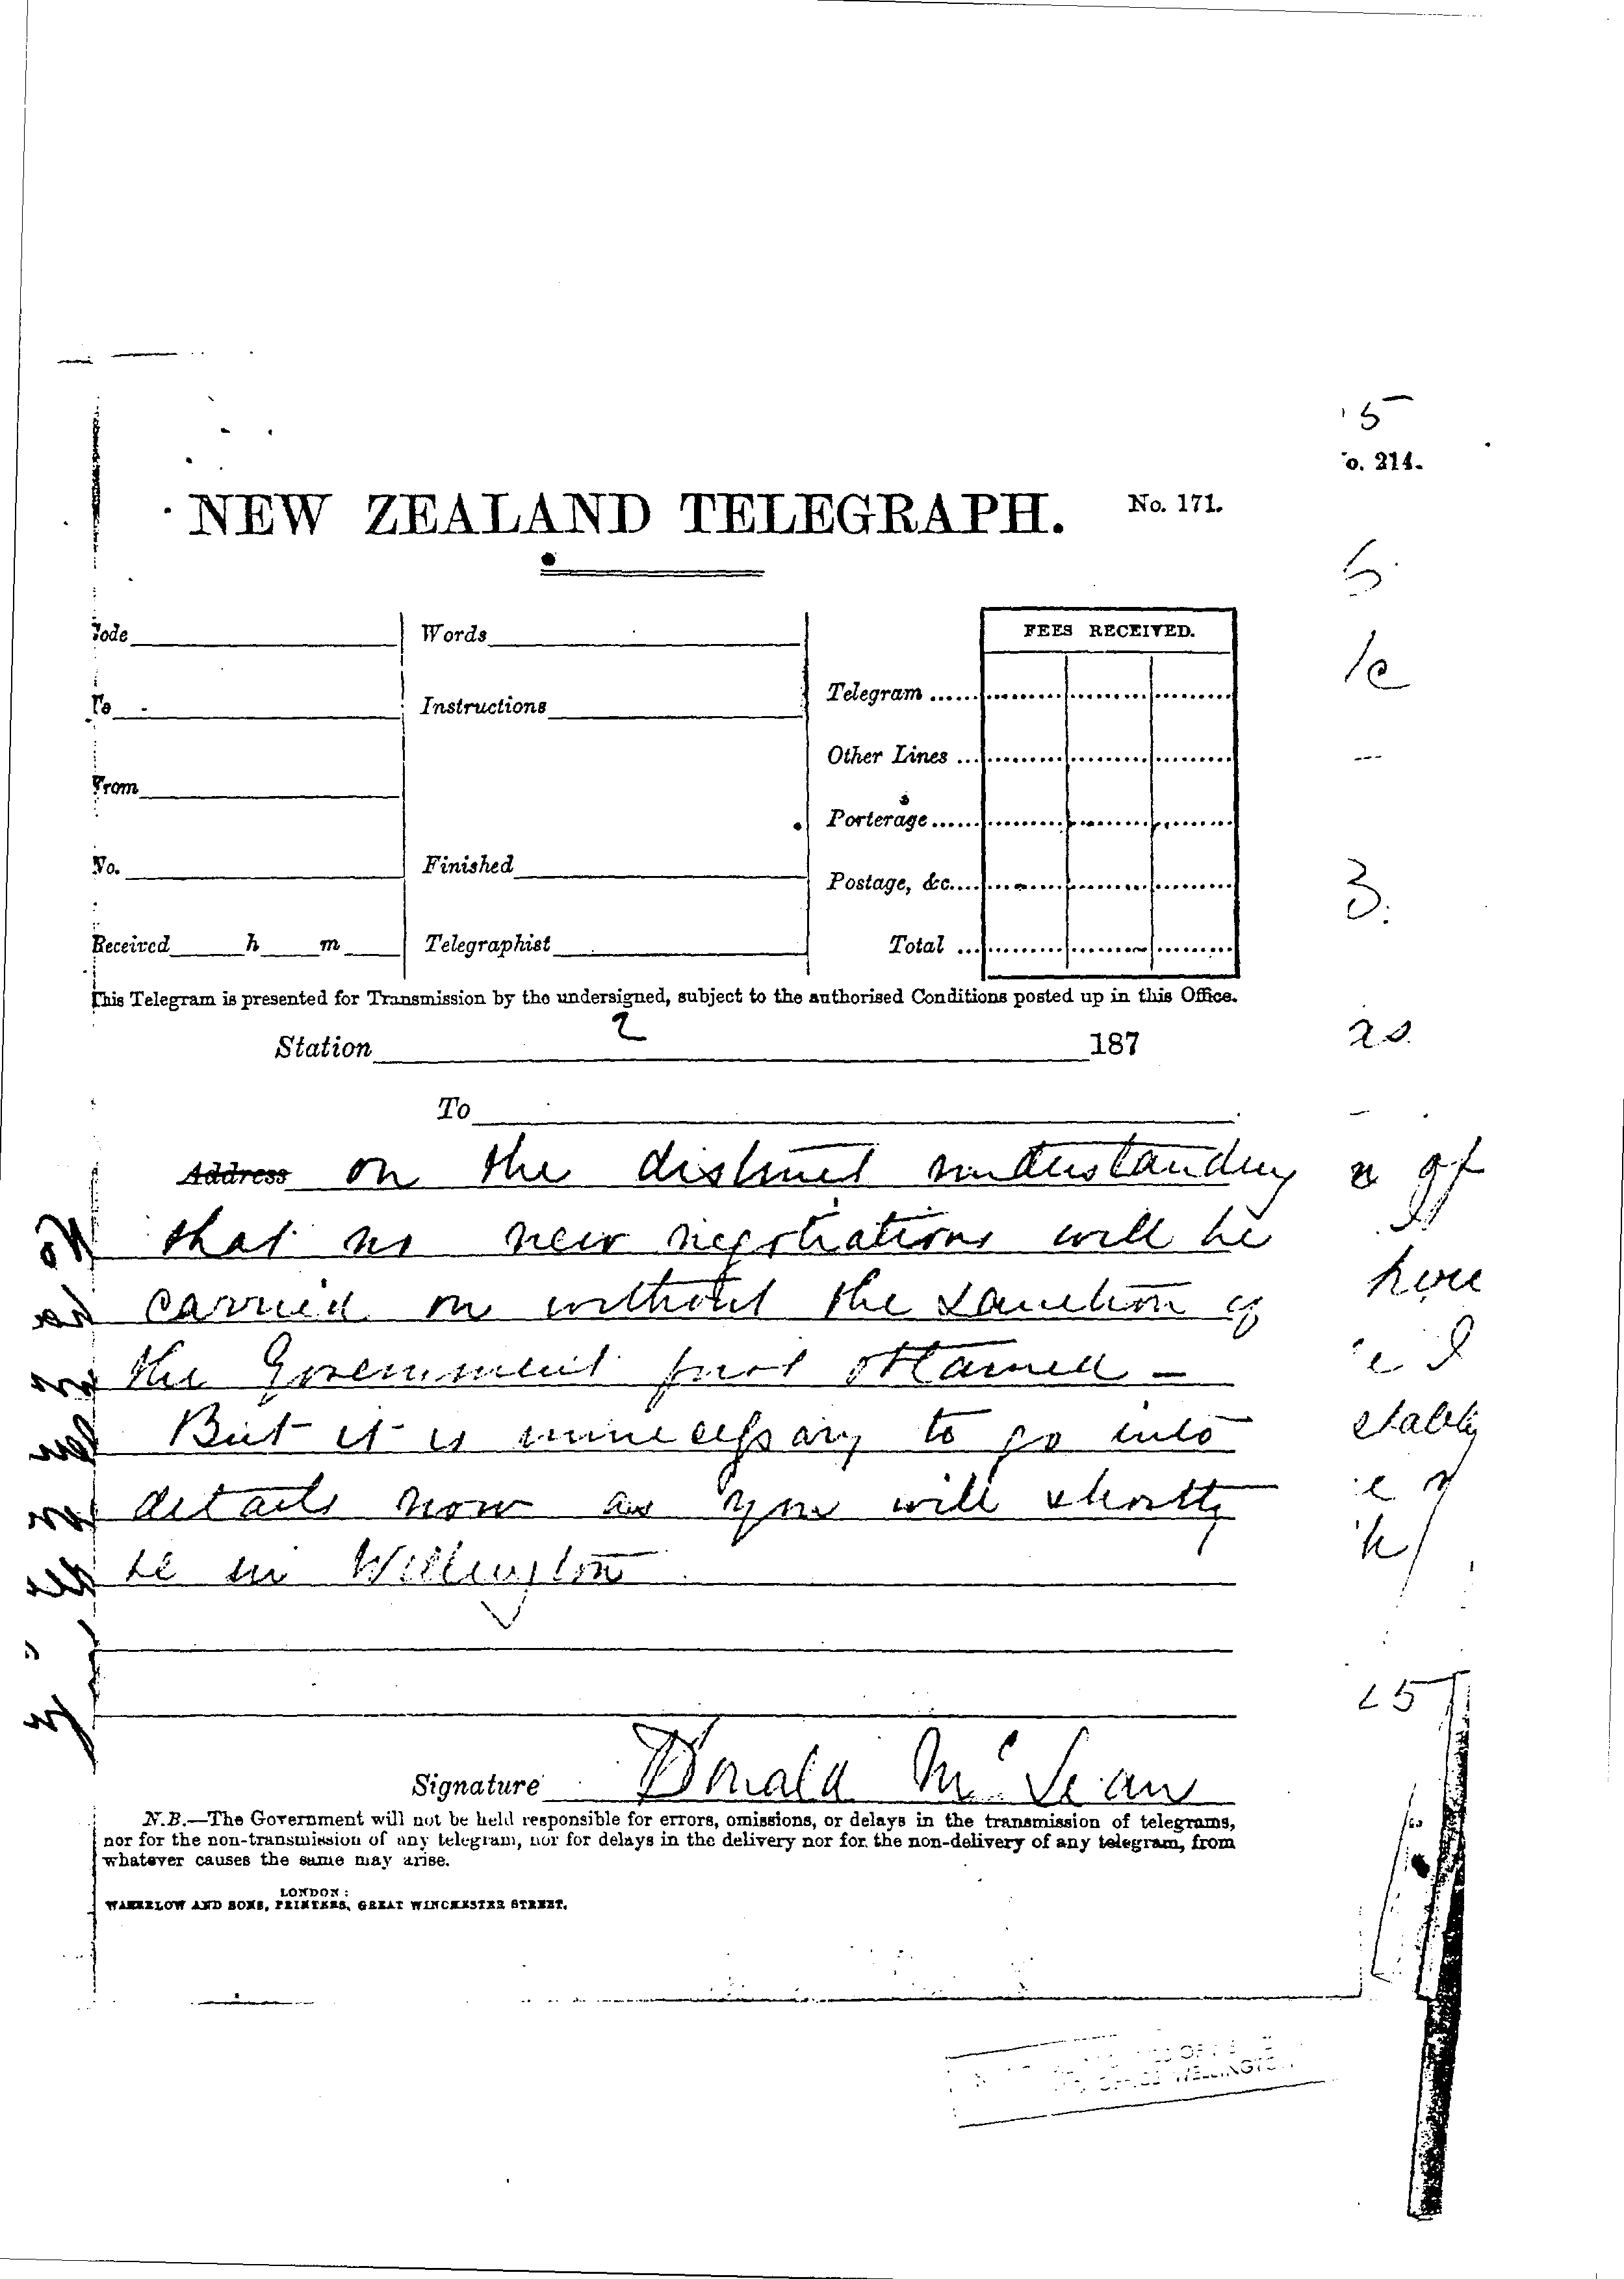 NEW ZEALAND TELEGRAPH. No. 171.
Code Words FEES RECEIVED.
To Instructions Telegram ......
Other Lines ...
From Porterage ......
No. Finished Postage, &c....
Received h m Telegraphist Total ...
This Telegram is presented for Transmission by the undersigned, subject to the authorised Conditions posted up in this Office.
2
Station 187
To
Address on the distinct understanding
that no new negotiations will be
carried on without the sanction of
the Government first obtained -
But it is unnecessary to go into
details now as you will shortly
be in Wellington
Signature Donald McLean
N.B.—The Government will not be held responsible for errors, omissions, or delays in the transmission of telegrams,
nor for the non-transmission of any telegram, nor for delays in the delivery nor for the non-delivery of any telegram, from
whatever causes the same may arise.
LONDON:
WATERLOW AND SONS, PRINTERS, GREAT WINCHESTER STREET.
5
o. 214.
3.
20.